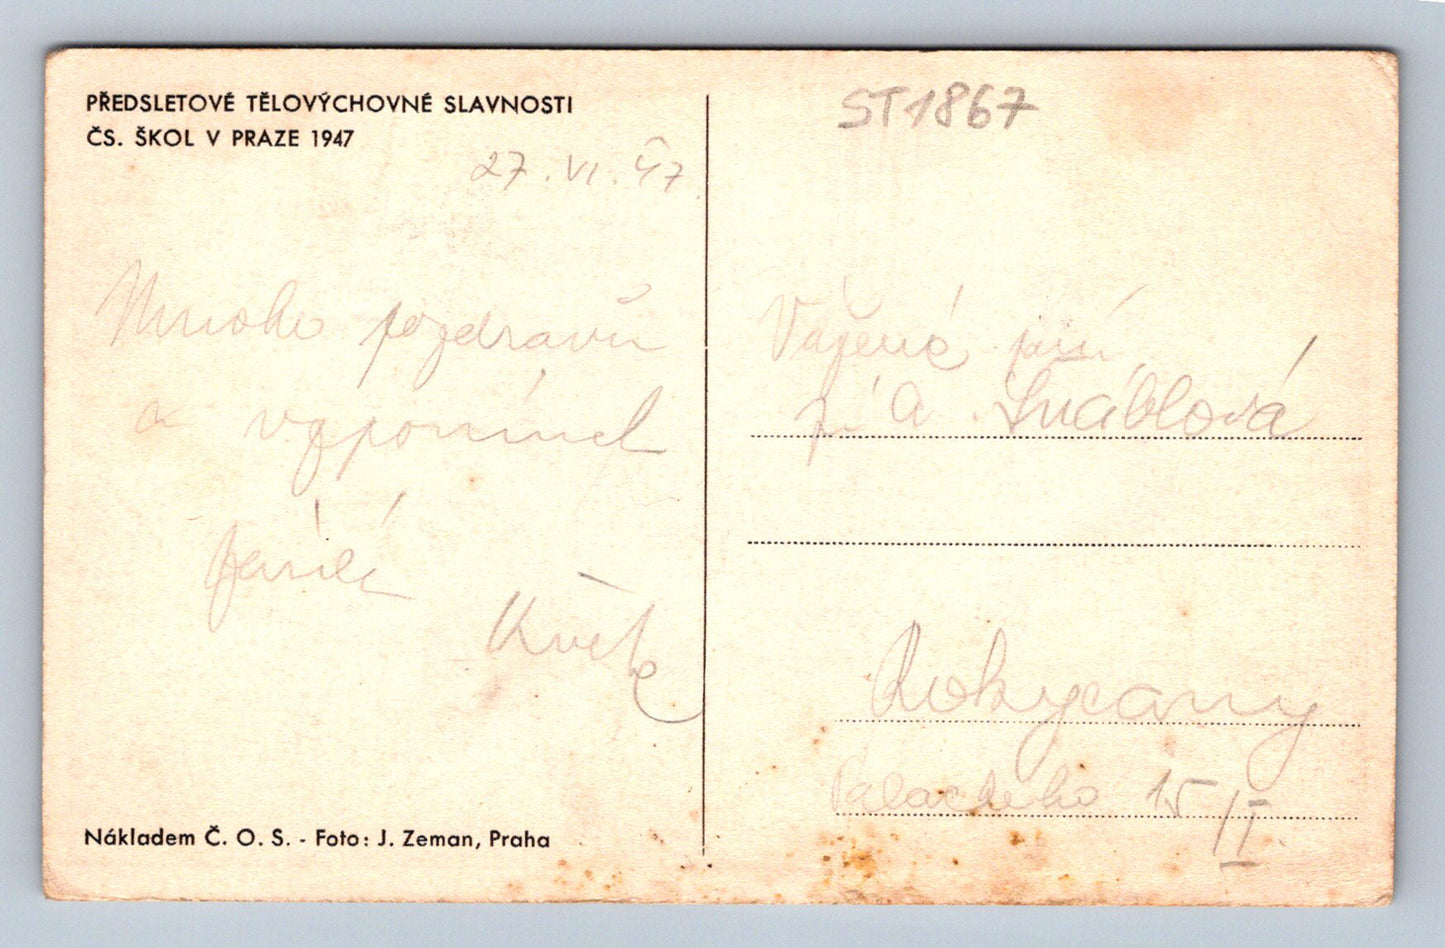 PŘEDSLETOVÉ TĚLOVÝCHOVNÉ SLAVNOSTI
ČS. ŠKOL V PRAZE 1947
27. VI. 47
Mnoho pozdravů
a vzpomínek
Květa
Nákladem Č. O. S. - Foto: J. Zeman, Praha
ST1867
Vážená paní
A. Šnáblová
Rokycany
Palackého 15/I.